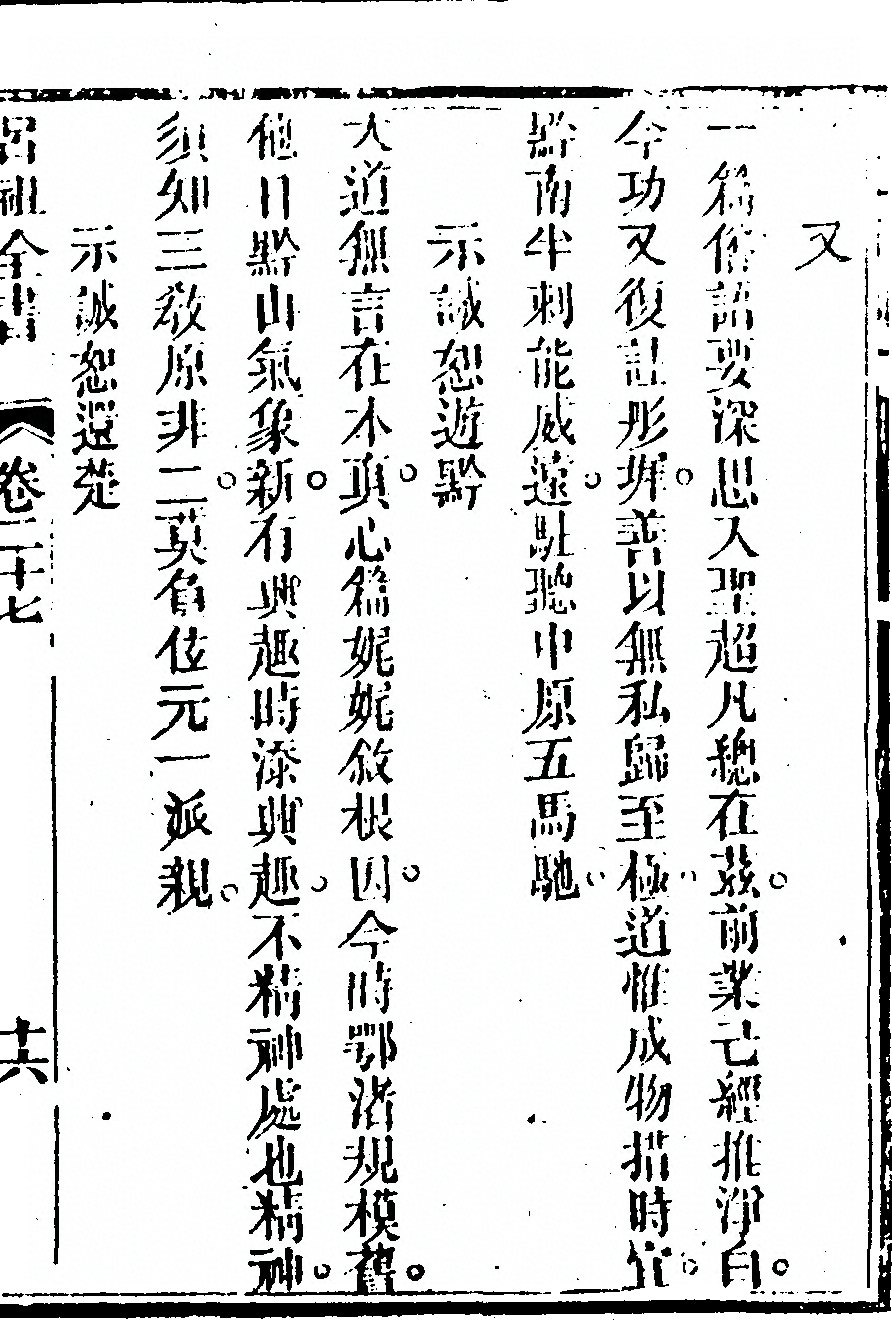 又
一篇俗語要深思入聖超凡總在茲。前業已經推淨白。
今功又復註彤墀。善以無私歸至極。道惟成物措時宜。
黔南半刺能威遠。駐聽中原五馬馳。
示誠恕遊黔
大道無言在本真。心篇娓娓敘根因。今時鄂渚規模舊。
他日黔山氣象新。有興趣時添興趣。不精神處也精神。
須如三教原非二。莫負位元一派親。
示誠恕還楚
呂祖全書 卷二十七 十六